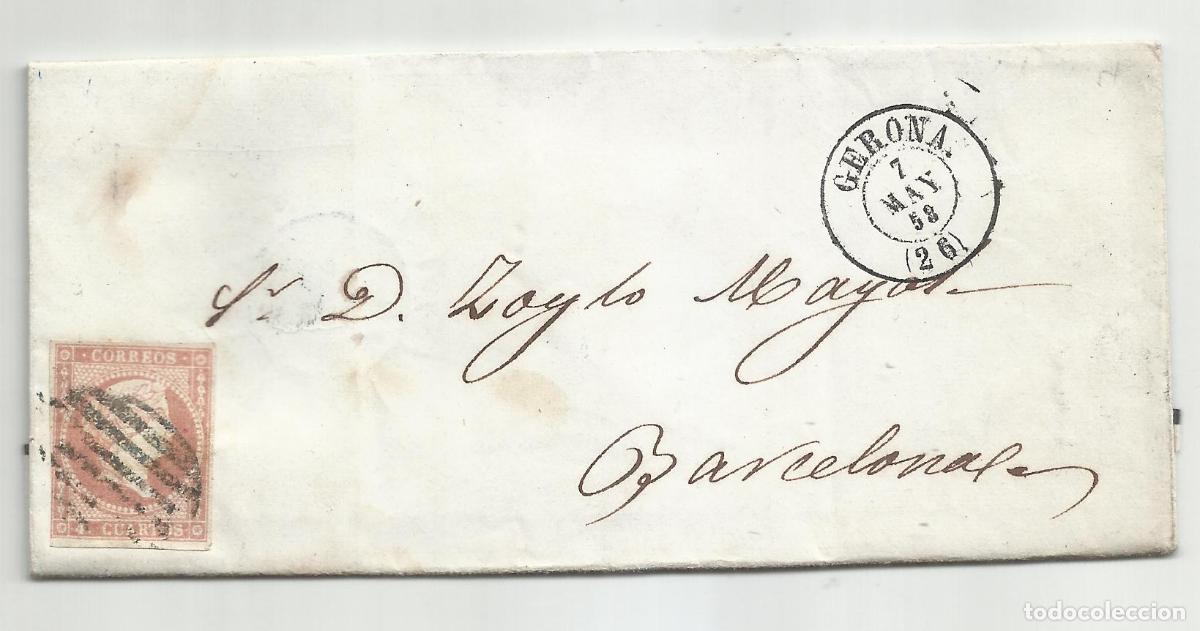 GERONA.
7
MAY
58
(26)
Sr D. Zoylo Mayol
Barcelona
CORREOS
4 CUARTOS
todocoleccion